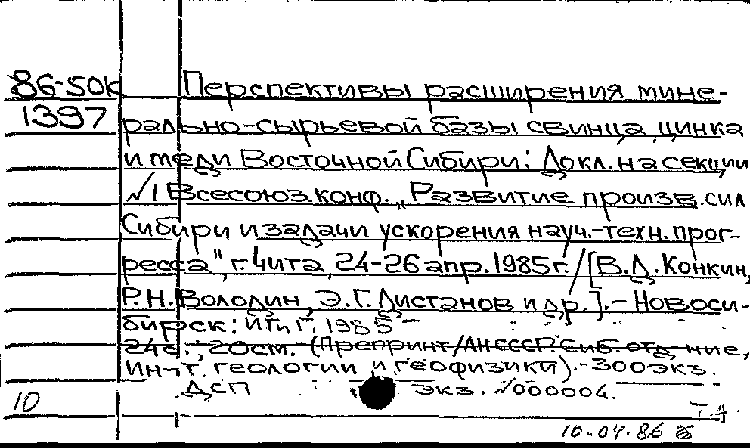 86-50к Перспективы расширения мине-
1397 рально-сырьевой базы свинца, цинка
и меди Восточной Сибири: Докл. на секции
√1 Всесоюз. конф. „Развитие произв. сил
Сибири и задачи ускорения науч.-техн. прог-
ресса", г. Чита, 24-26 апр. 1985г. / [В.Д. Конкин,
Р.Н. Володин, Э.Г. Дистанов и др.]. - Новоси-
бирск: ИГиГ, 1985 -
24с.; 20см. (Препринт/АН СССР. Сиб. отд-ние,
Ин-т. геологии и геофизики). - 300 экз.
ДСП экз. √000004.
10
10.04.86